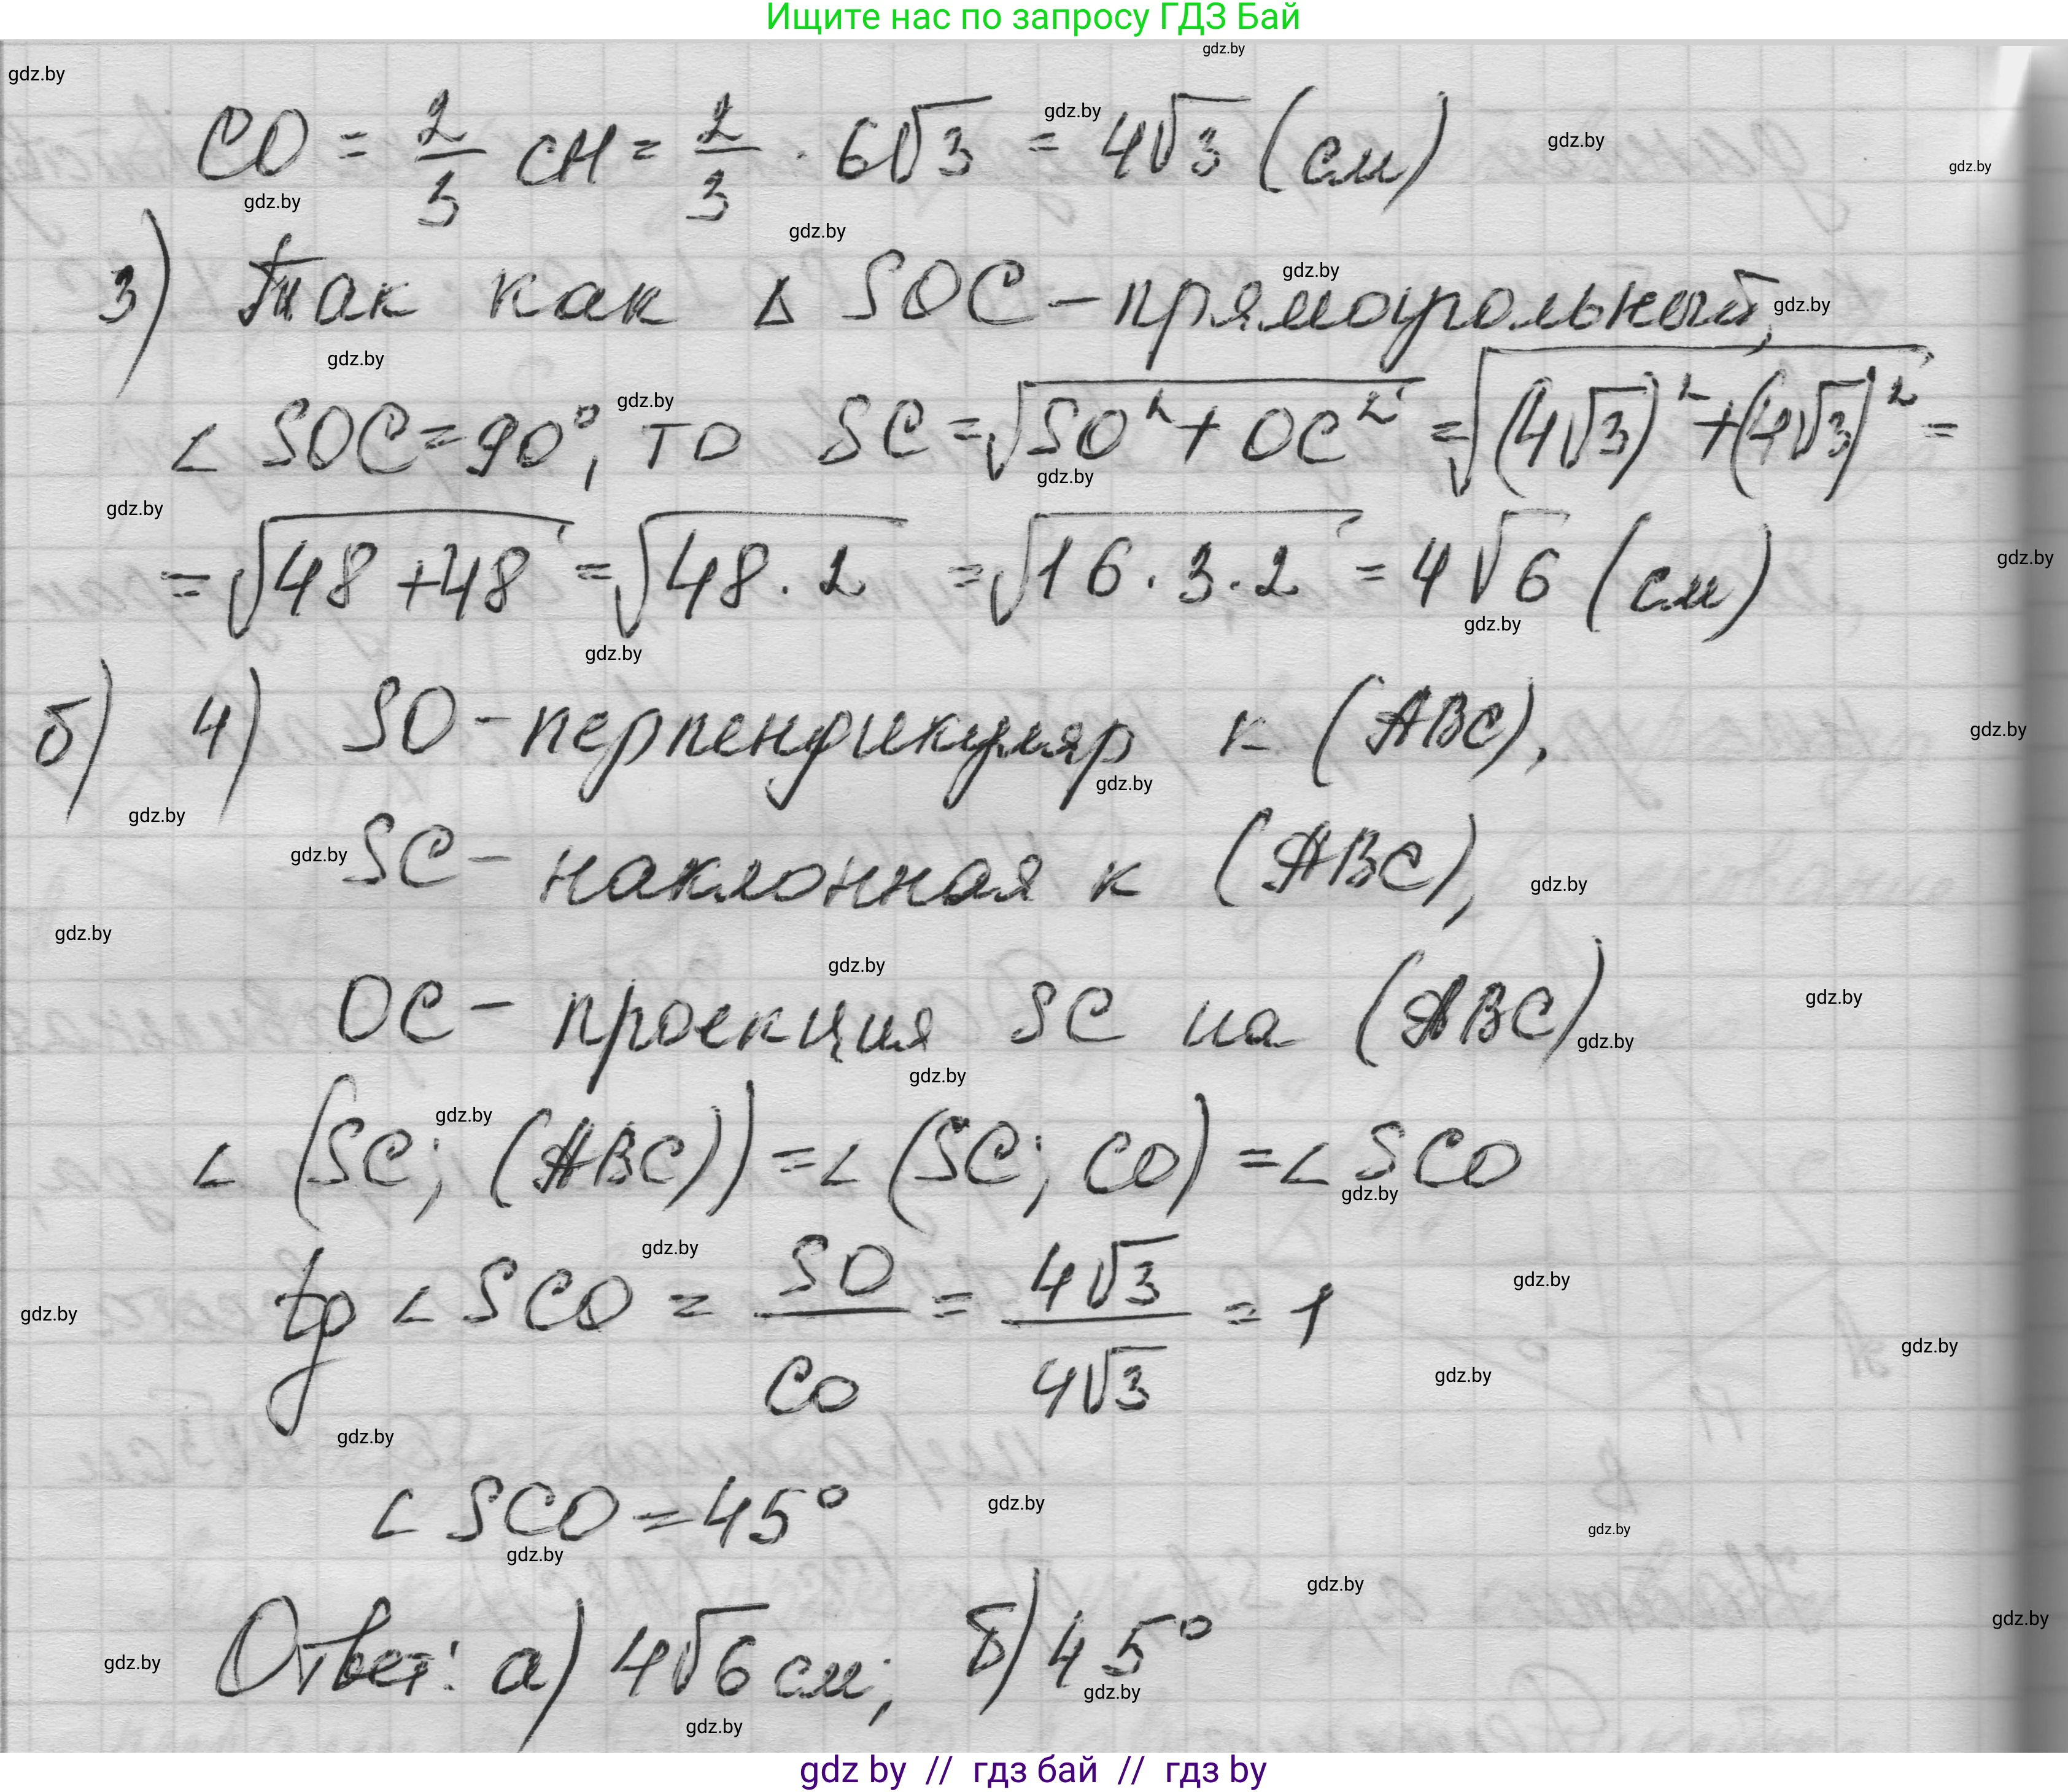 Ищите нас по запросу ГДЗ Бай
CO = 2/3 CH = 2/3 · 6√3 = 4√3 (см)
3) Так как Δ SOC – прямоугольный,
∠ SOC = 90°, то SC = √(SO² + OC²) = √((4√3)² + (4√3)²) =
= √(48 + 48) = √(48 · 2) = √(16 · 3 · 2) = 4√6 (см)
б) 4) SO – перпендикуляр к (ABC),
SC – наклонная к (ABC),
OC – проекция SC на (ABC)
∠ (SC; (ABC)) = ∠ (SC; CO) = ∠ SCO
tg ∠ SCO = SO/CO = 4√3/4√3 = 1
∠ SCO = 45°
Ответ: а) 4√6 см; б) 45°
gdz by // гдз бай // гдз by